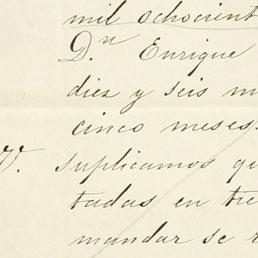 mil ochocient
D.n Enrique
diez y seis m
cinco meses.
V. suplicamos qu
tadas en tie
mandar se r